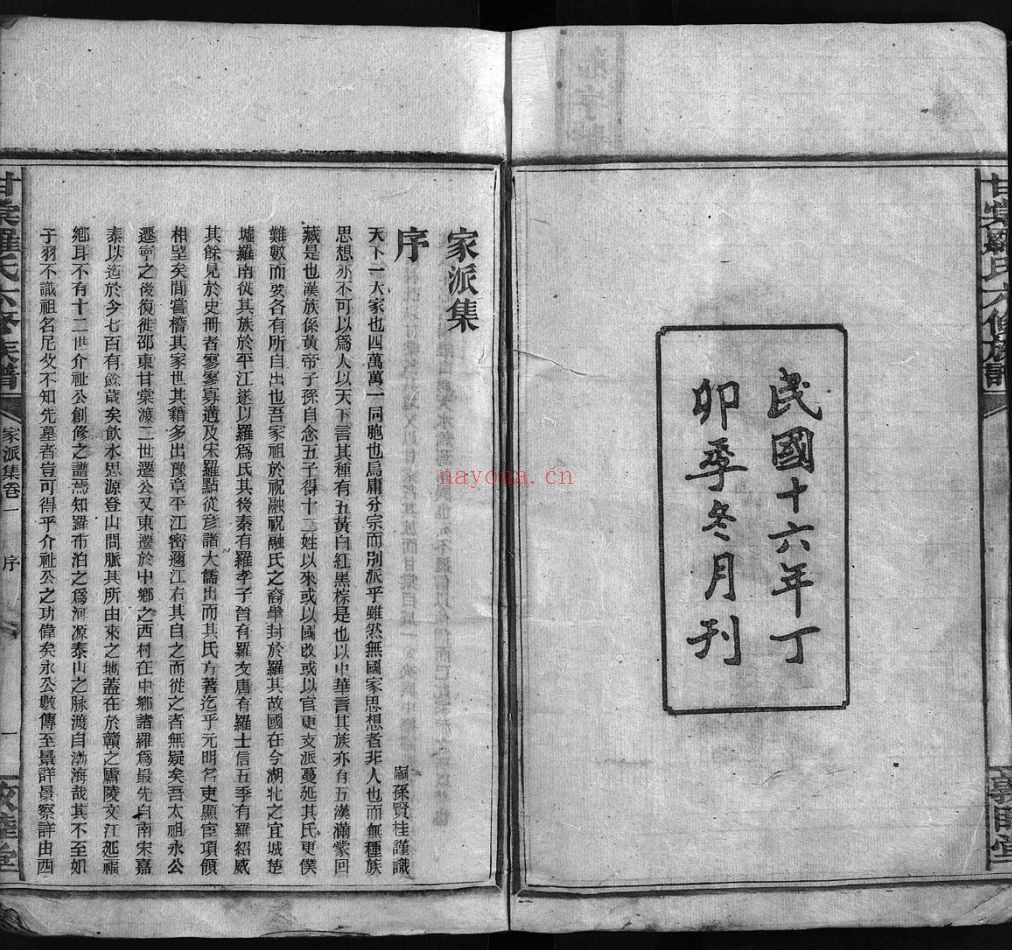 民國十六年丁
卯季冬月刊
甘棠羅氏六修族譜
敦睦堂
家派集
序
嗣孫賢桂謹識
天下一大家也四萬萬一同胞也烏庸分宗而別派乎雖然無國家思想者非人也而無種族
思想亦不可以爲人以天下言其種有五黃白紅黑棕是也以中華言其族亦有五漢滿蒙回
藏是也漢族係黃帝子孫自念五子得十二姓以來或以國改或以官更支派蔓延其氏更僕
難數而要各有所自出也吾家祖於祝融祝融氏之裔舉封於羅其故國在今湖北之宜城楚
墟羅南徙其族於平江遂以羅爲氏其後秦有羅李子晉有羅友唐有羅士信五季有羅紹威
其餘見於史冊者寥寥寡遘及宋羅點從彥諸大儒出而其氏方著迄乎元明名吏顯宦項領
相望矣間嘗稽其家世其籍多出豫章平江密邇江右其自之而徙之者無疑矣吾太祖永公
遷寧之後復徙邵東甘棠渡二世遷公又東遷於中鄉之西村在中鄉諸羅爲最先自南宋嘉
泰以迄於今七百有餘歲矣飲水思源登山問脈其所由來之地蓋在於贛之廬陵文江延福
鄉耳不有十二世介祉公創修之譜焉知羅布泊之爲河源泰山之脉渡自渤海哉其不至如
于羽不識祖名足攵不知先墓者豈可得乎介祉公之功偉矣永公數傳至景詳景察詳由西
甘棠羅氏六修族譜
家派集卷一
序
一
敦睦堂
nayona.cn